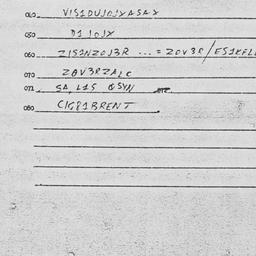 040 VIS1DUJOJXASAX
050 D1JOJX
060 Z1S2NZOJ3R ... = ZOV3R/ES1KFLL
070 ZOV3RZALC
071 SA, L1S QSYN
080 C1G81BRENT